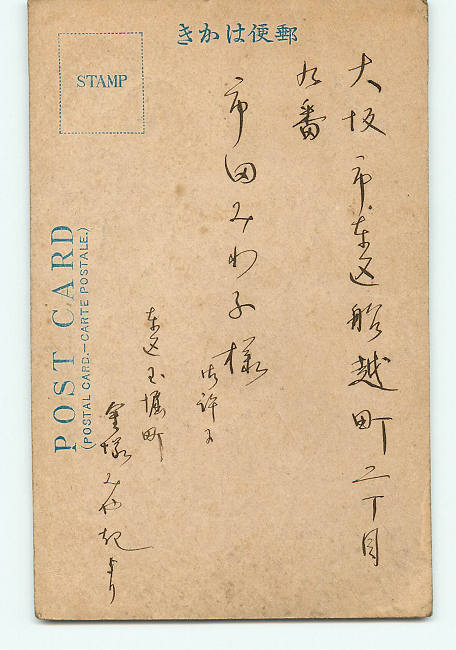 郵便はかき
STAMP
大坂市東区船越町二丁目
九番
市田みわ子様
御許に
東区玉堀町
みや起より
POST CARD
(POSTAL CARD.—CARTE POSTALE.)